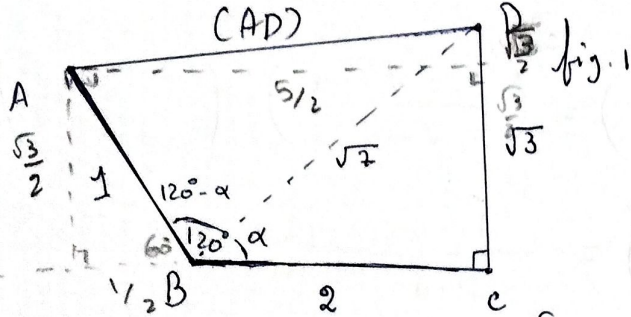 (AD)
D
√3/2
fig. 1
A
5/2
√3/2
√3
√3/2
1
√7
120°-α
60
120°
α
1/2
B
2
C